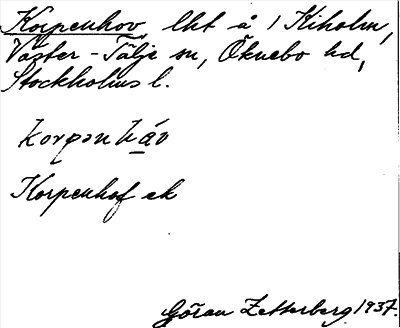 Korpenhov, lht å 1 Kiholm,
Väster-Tälje sn, Öknebo hd,
Stockholms l.
korpənháv
Korpenhof ek
Göran Zetterberg 1937.